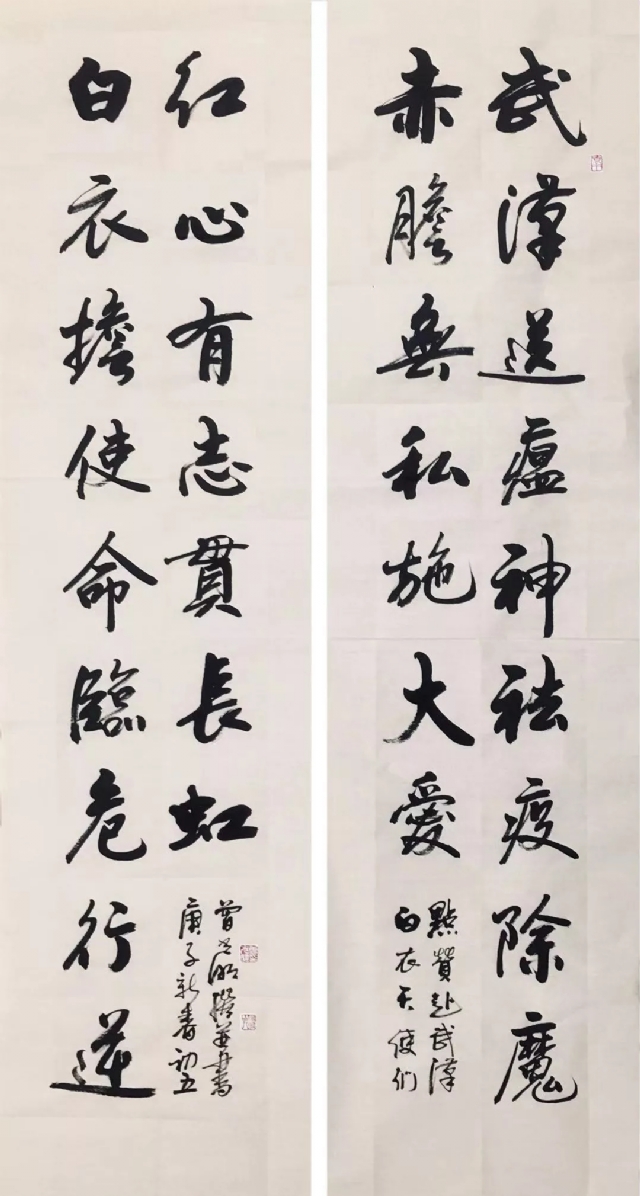 武漢送瘟神祛疫除魔
赤膽無私施大愛
點贊赴武漢
白衣天使们
白衣擔使命臨危行逆
红心有志貫長虹
庚子新春初五
曾撰并書